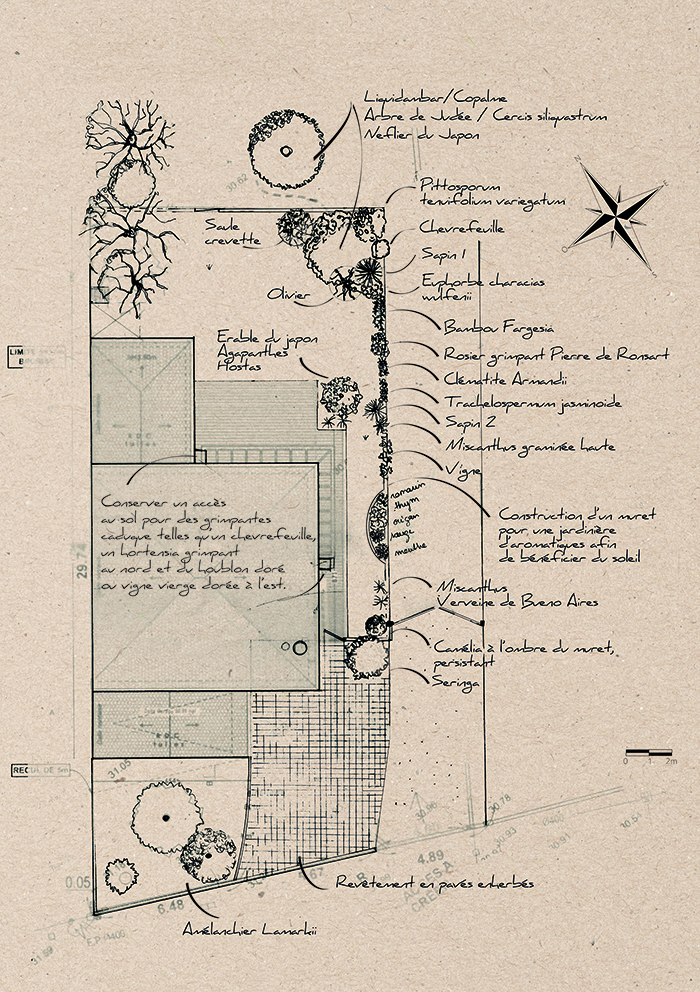 Liquidambar/Copalme
Arbre de Judée / Cercis siliquastrum
Neflier du Japon
N
E
S
O
30.62
Pittosporum
tenuifolium variegatum
Saule
crevette
Chevrefeuille
Sapin 1
Olivier
Euphorbe characias
wulfenii
Bambou Fargesia
Erable du japon
Agapanthes
Hostas
Rosier grimpant Pierre de Ronsart
Clématite Armandii
Trachelospermum jasminoide
Sapin 2
Miscanthus graminée haute
Vigne
romarin
thym
origan
sauge
menthe
Construction d'un muret
pour une jardinière
d'aromatiques afin
de bénéficier du soleil
Conserver un accès
au sol pour des grimpantes
caduque telles qu'un chevrefeuille,
un hortensia grimpant
au nord et du houblon doré
ou vigne vierge dorée à l'est.
29.74
Miscanthus
Verveine de Bueno Aires
Camélia à l'ombre du muret,
persistant
Seringa
R D C
tuiles
0 1 2m
RECUL DE 5m
31.05
30.86
30.78
4.89
0.05
6.48
Revêtement en pavés enherbés
Amélanchier Lamarkii